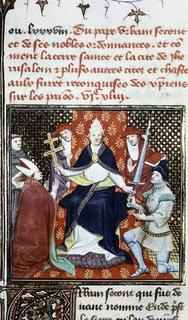 ou. lxxxviii. Du pape Urbain second
et de ses nobles ordonnances. et co
ment la terre sainte et la cite de Jhe
rusalem et plusrs autres citez et chaste
aulx furent reconquises des xpiens
sur les
Urbain second qui fut de
uant nomme Eude